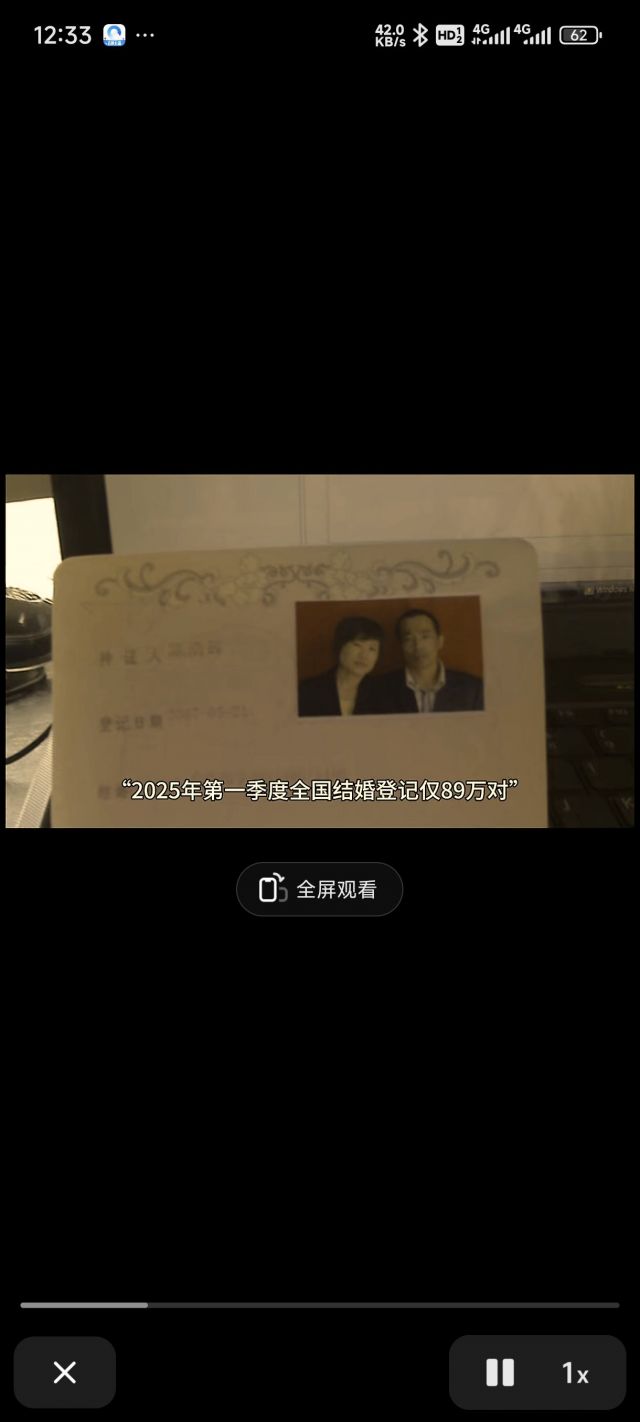 12:33
42.0
KB/s
HD 1 2
4G
4G
62
持证人
登记日期
“2025年第一季度全国结婚登记仅89万对”
全屏观看
1x